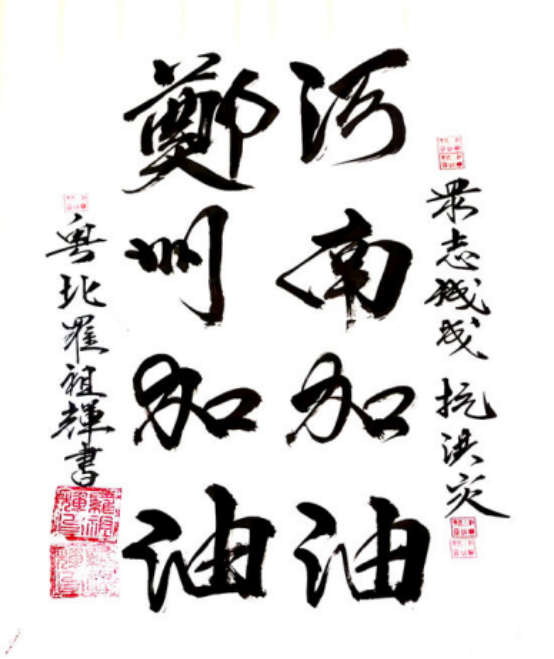 眾志城成 抗洪灾
河南加油
鄭州加油
粤北羅祖輝書